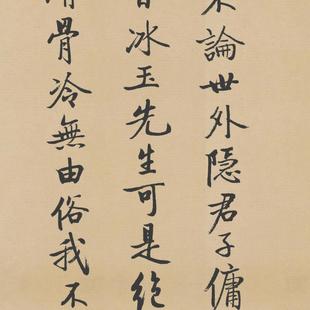 論世外隱君子傭
冰玉先生可是絶
骨冷無由俗我不